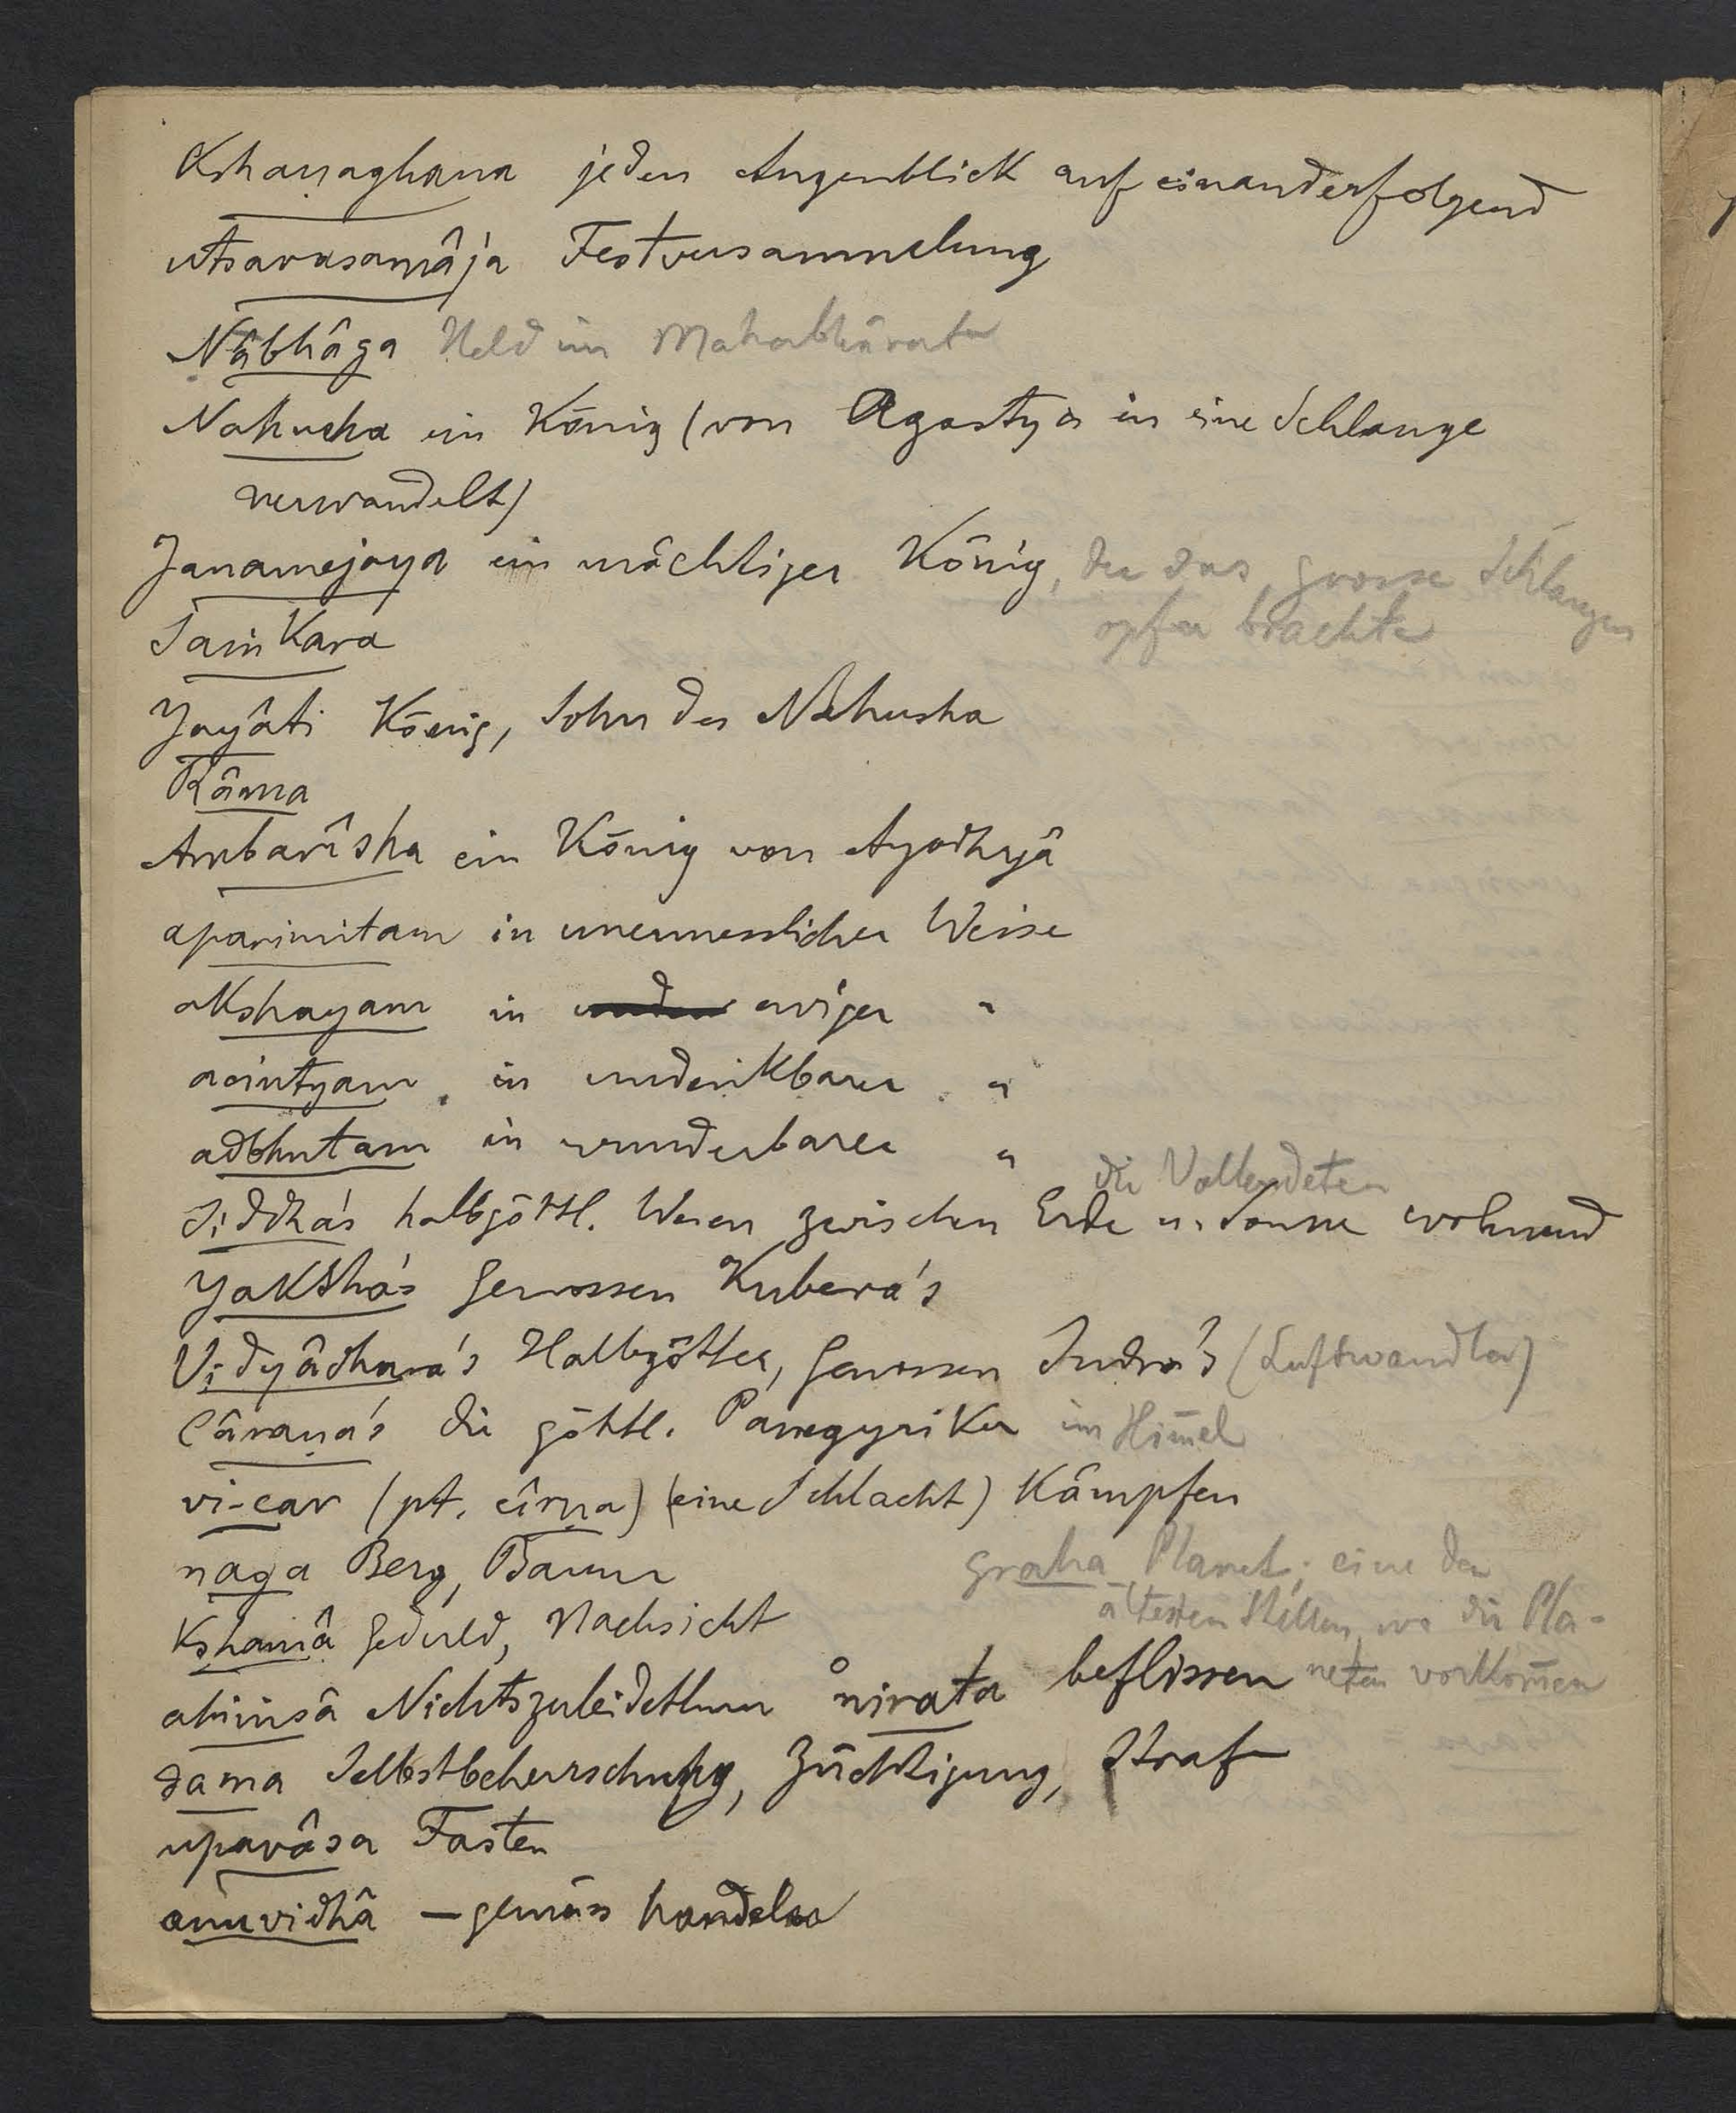 Kshaṇaghana jeden Augenblick aufeinanderfolgend
utsavasamâja Festversammlung
Nâbhâga Held im Mahabhârata
Nahusha ein König (von Agastya in eine Schlange
verwandelt)
Janamejaya ein mächtiger König, der das grosse Schlangen
opfer brachte
Śaṁkara
Yayâti König, Sohn des Nahusha
Râma
Ambarîsha ein König von Ayodhyâ
aparimitam in unermesslicher Weise
akshayam in ewiger "
acintyam in undenkbarer "
adbhutam in wunderbarer "
die Vollendeten
Siddha's halbgöttl. Wesen zwischen Erde u. Sonne wohnend
Yaksha's Genossen Kubera's
Vidyâdhara's Halbgötter, Genossen Indra's (Luftwandler)
Câraṇa's die göttl. Panegyriker im Himmel
vi-car (pt. cîrṇa) (eine Schlacht) kämpfen
naga Berg, Baum
graha Planet; eine der
ältesten Stellen, wo die Pla-
neten vorkommen
Kshamâ Geduld, Nachsicht
ahiṁsâ Nichtszuleidethun °nirata beflissen
dama Selbstbeherrschung, Züchtigung, Strafe
upavâsa Fasten
anuvidhâ – gemäss handeln